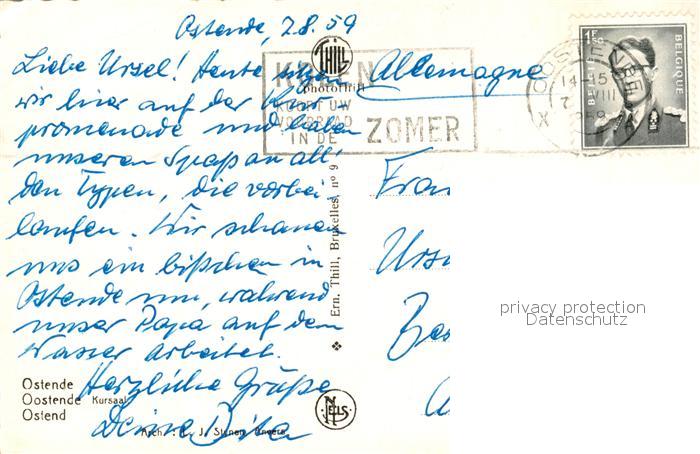 Ostende, 7.8.59
Liebe Ursel! Heute sitzen
wir hier auf der Kur-
promenade und haben
unseren Spaß an all'
den Typen, die vorbei-
laufen. Wir schauen
uns ein bißchen in
Ostende um, während
unser Papa auf dem
Wasser arbeitet.
Herzliche Grüße
Deine Dita
Ostende
Oostende Kursaal
Ostend
Arch. : L. J. Stynen Anvers
THILL
KOOPT UW
VOORRAAD
IN DE
ZOMER
Ern. Thill, Bruxelles, nº 9
NELS
Allemagne
14-15
1F50
BELGIE BELGIQUE
Frau
privacy protection
Datenschutz